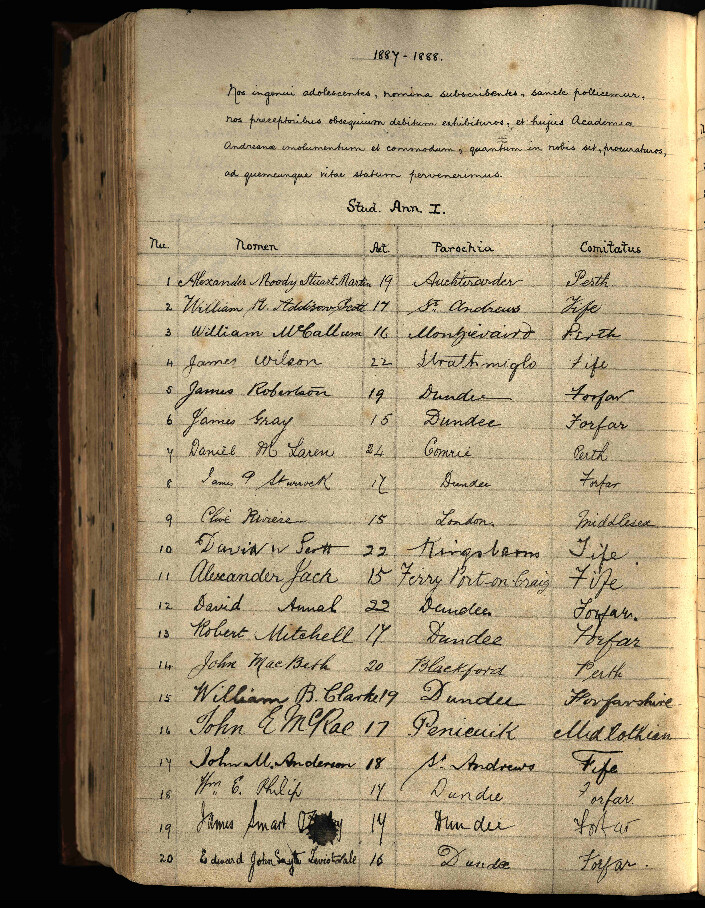 1887-1888.
Nos ingenui adolescentes, nomina subscribentes, sancte pollicemur,
nos preceptoribus obsequium debitum exhibituros, et hujus Academiæ
Andreanæ emolumentum et commodum, quantum in nobis sit, procuraturos,
ad quemcunque vitae statum pervenerimus.
Stud. Ann I.
Nu. Nomen Aet. Parochia Comitatus
1 Alexander Moody Stuart Martin 19 Auchterarder Perth
2 William H. Addison Scott 17 St. Andrews Fife
3 William McCallum 16 Monzievaird Perth
4 James Wilson 22 Strathmiglo Fife
5 James Robertson 19 Dundee Forfar
6 James Gray 15 Dundee Forfar
7 Daniel McLaren 24 Comrie Perth
8 James Sturrock 17 Dundee Forfar
9 Clive Riviere 15 London Middlesex
10 David W Scott 22 Kingsbarns Fife
11 Alexander Jack 15 Ferry Port-on-Craig Fife
12 David Annal 22 Dundee Forfar.
13 Robert Mitchell 17 Dundee Forfar
14 John MacBeth 20 Blackford Perth
15 William B. Clarke 19 Dundee Forfarshire
16 John E McRae 17 Penicuik Midlothian
17 John M. Anderson 18 St. Andrews Fife
18 Wm. E. Philip 17 Dundee Forfar
19 James Smart 17 Dundee Forfar
20 Edward John 16 Dundee Forfar.